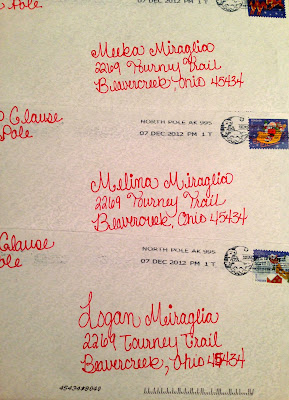 Pole
07 DEC 2012 PM 1 T
Meeka Miraglia
2269 Tourney Trail
Beavercreek, Ohio 45434
Clause
Pole
NORTH POLE AK 995
07 DEC 2012 PM 1 T
Melina Miraglia
2269 Tourney Trail
Beavercreek, Ohio 45434
Clause
ole
NORTH POLE AK 995
07 DEC 2012 PM 1 T
Logan Miraglia
2269 Tourney Trail
Beavercreek, Ohio 45434